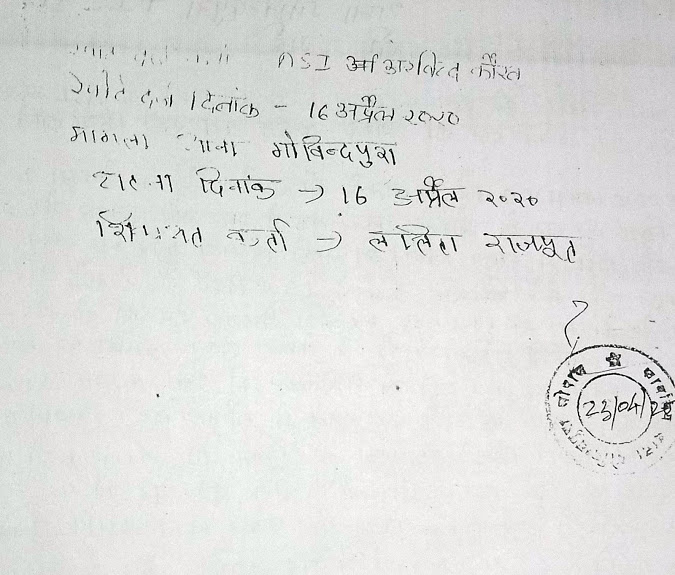 ASI अरविन्द कौरव
रपोर्ट दर्ज दिनांक - 16 अप्रैल २०२०
मामला थाना गोविन्दपुरा
घटना दिनांक → 16 अप्रैल २०२०
शिकायत कर्ता → ललिता राजपूत
भोपाल
23/04/22